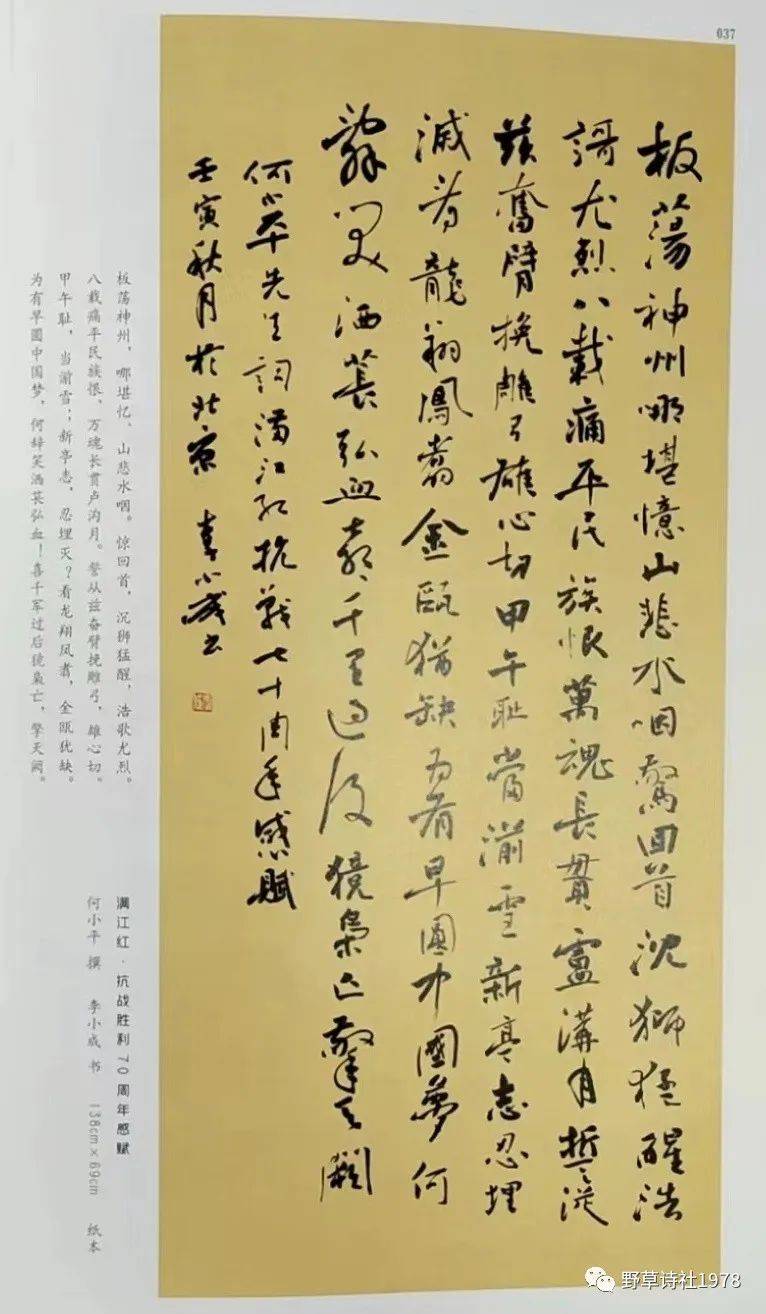 037
板蕩神州哪堪憶山悲水咽驚回首沈獅猛醒浩
謌尤烈八載痛平民族恨萬魂長貫盧溝月誓從
兹奮臂挽雕弓雄心切甲午耻當湔雪新亭志忍埋
滅看龍翔鳳翥金甌猶缺為有早圓中國夢何
辭笑洒萇弘血喜千軍過後獍梟亡擎天闕
何小平先生詞滿江紅抗戰七十周年感賦
壬寅秋月於北京 李小成書
板荡神州，哪堪忆，山悲水咽。惊回首，沉狮猛醒，浩歌尤烈。
八载痛平民族恨，万魂长贯卢沟月。誓从兹奋臂挽雕弓，雄心切。
甲午耻，当湔雪；新亭志，忍埋灭？看龙翔凤翥，金瓯犹缺。
为有早圆中国梦，何辞笑洒苌弘血！喜千军过后獍枭亡，擎天阙。
满江红·抗战胜利70周年感赋
何小平 撰 李小成 书 138cm×69cm 纸本
野草诗社1978